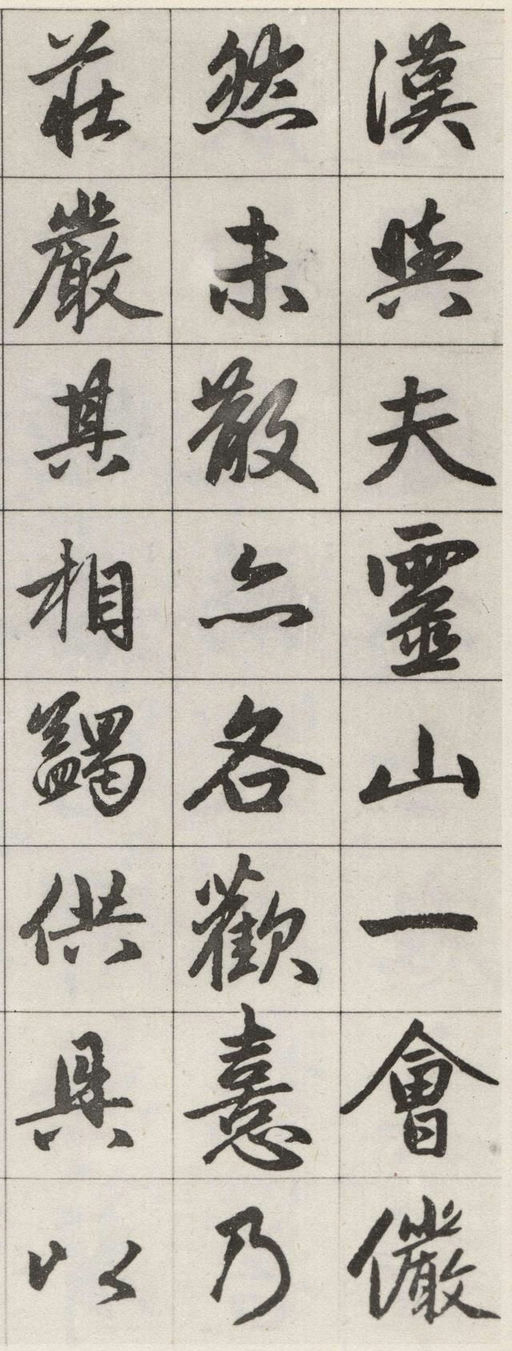 漠與夫靈山一會儼
然未散亦各歡憙乃
莊嚴其相蠲供具以